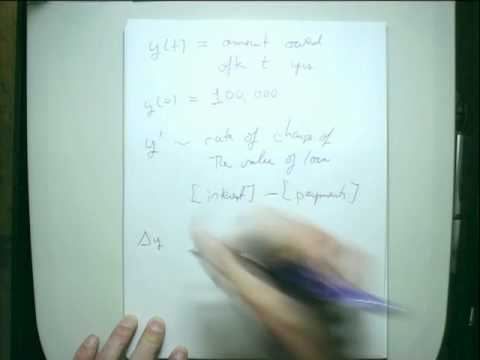 y(t) = amount owed
after t yrs
y(0) = 100,000
y' ~ rate of change of
the value of loan
[interest] - [payments]
Δy